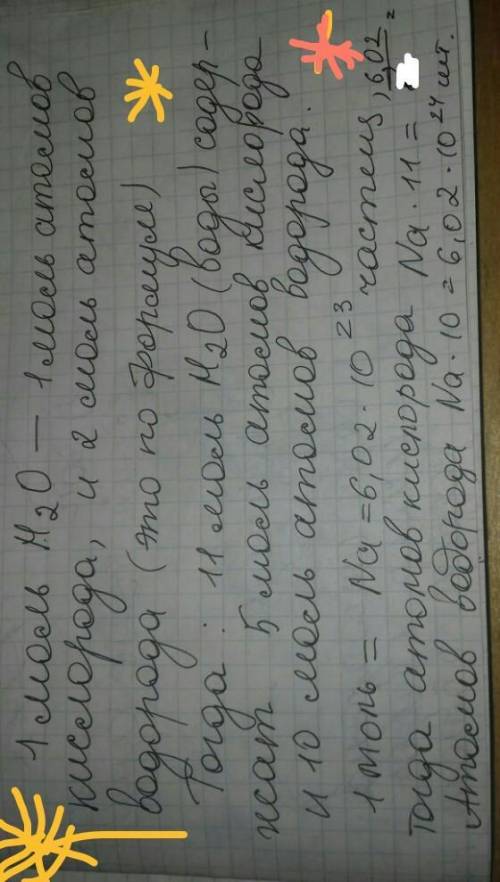 1 моль H₂O — 1 моль атомов
кислорода, и 2 моль атомов
водорода (это по формуле)
Тогда : 11 моль H₂O (воды) содер-
жат 5 моль атомов кислорода
и 10 моль атомов водорода.
1 моль = Na = 6,02 · 10²³ частиц, 6,02
Тогда атомов кислорода Na · 11 =
Атомов водорода Na · 10 = 6,02 · 10²⁴ шт.